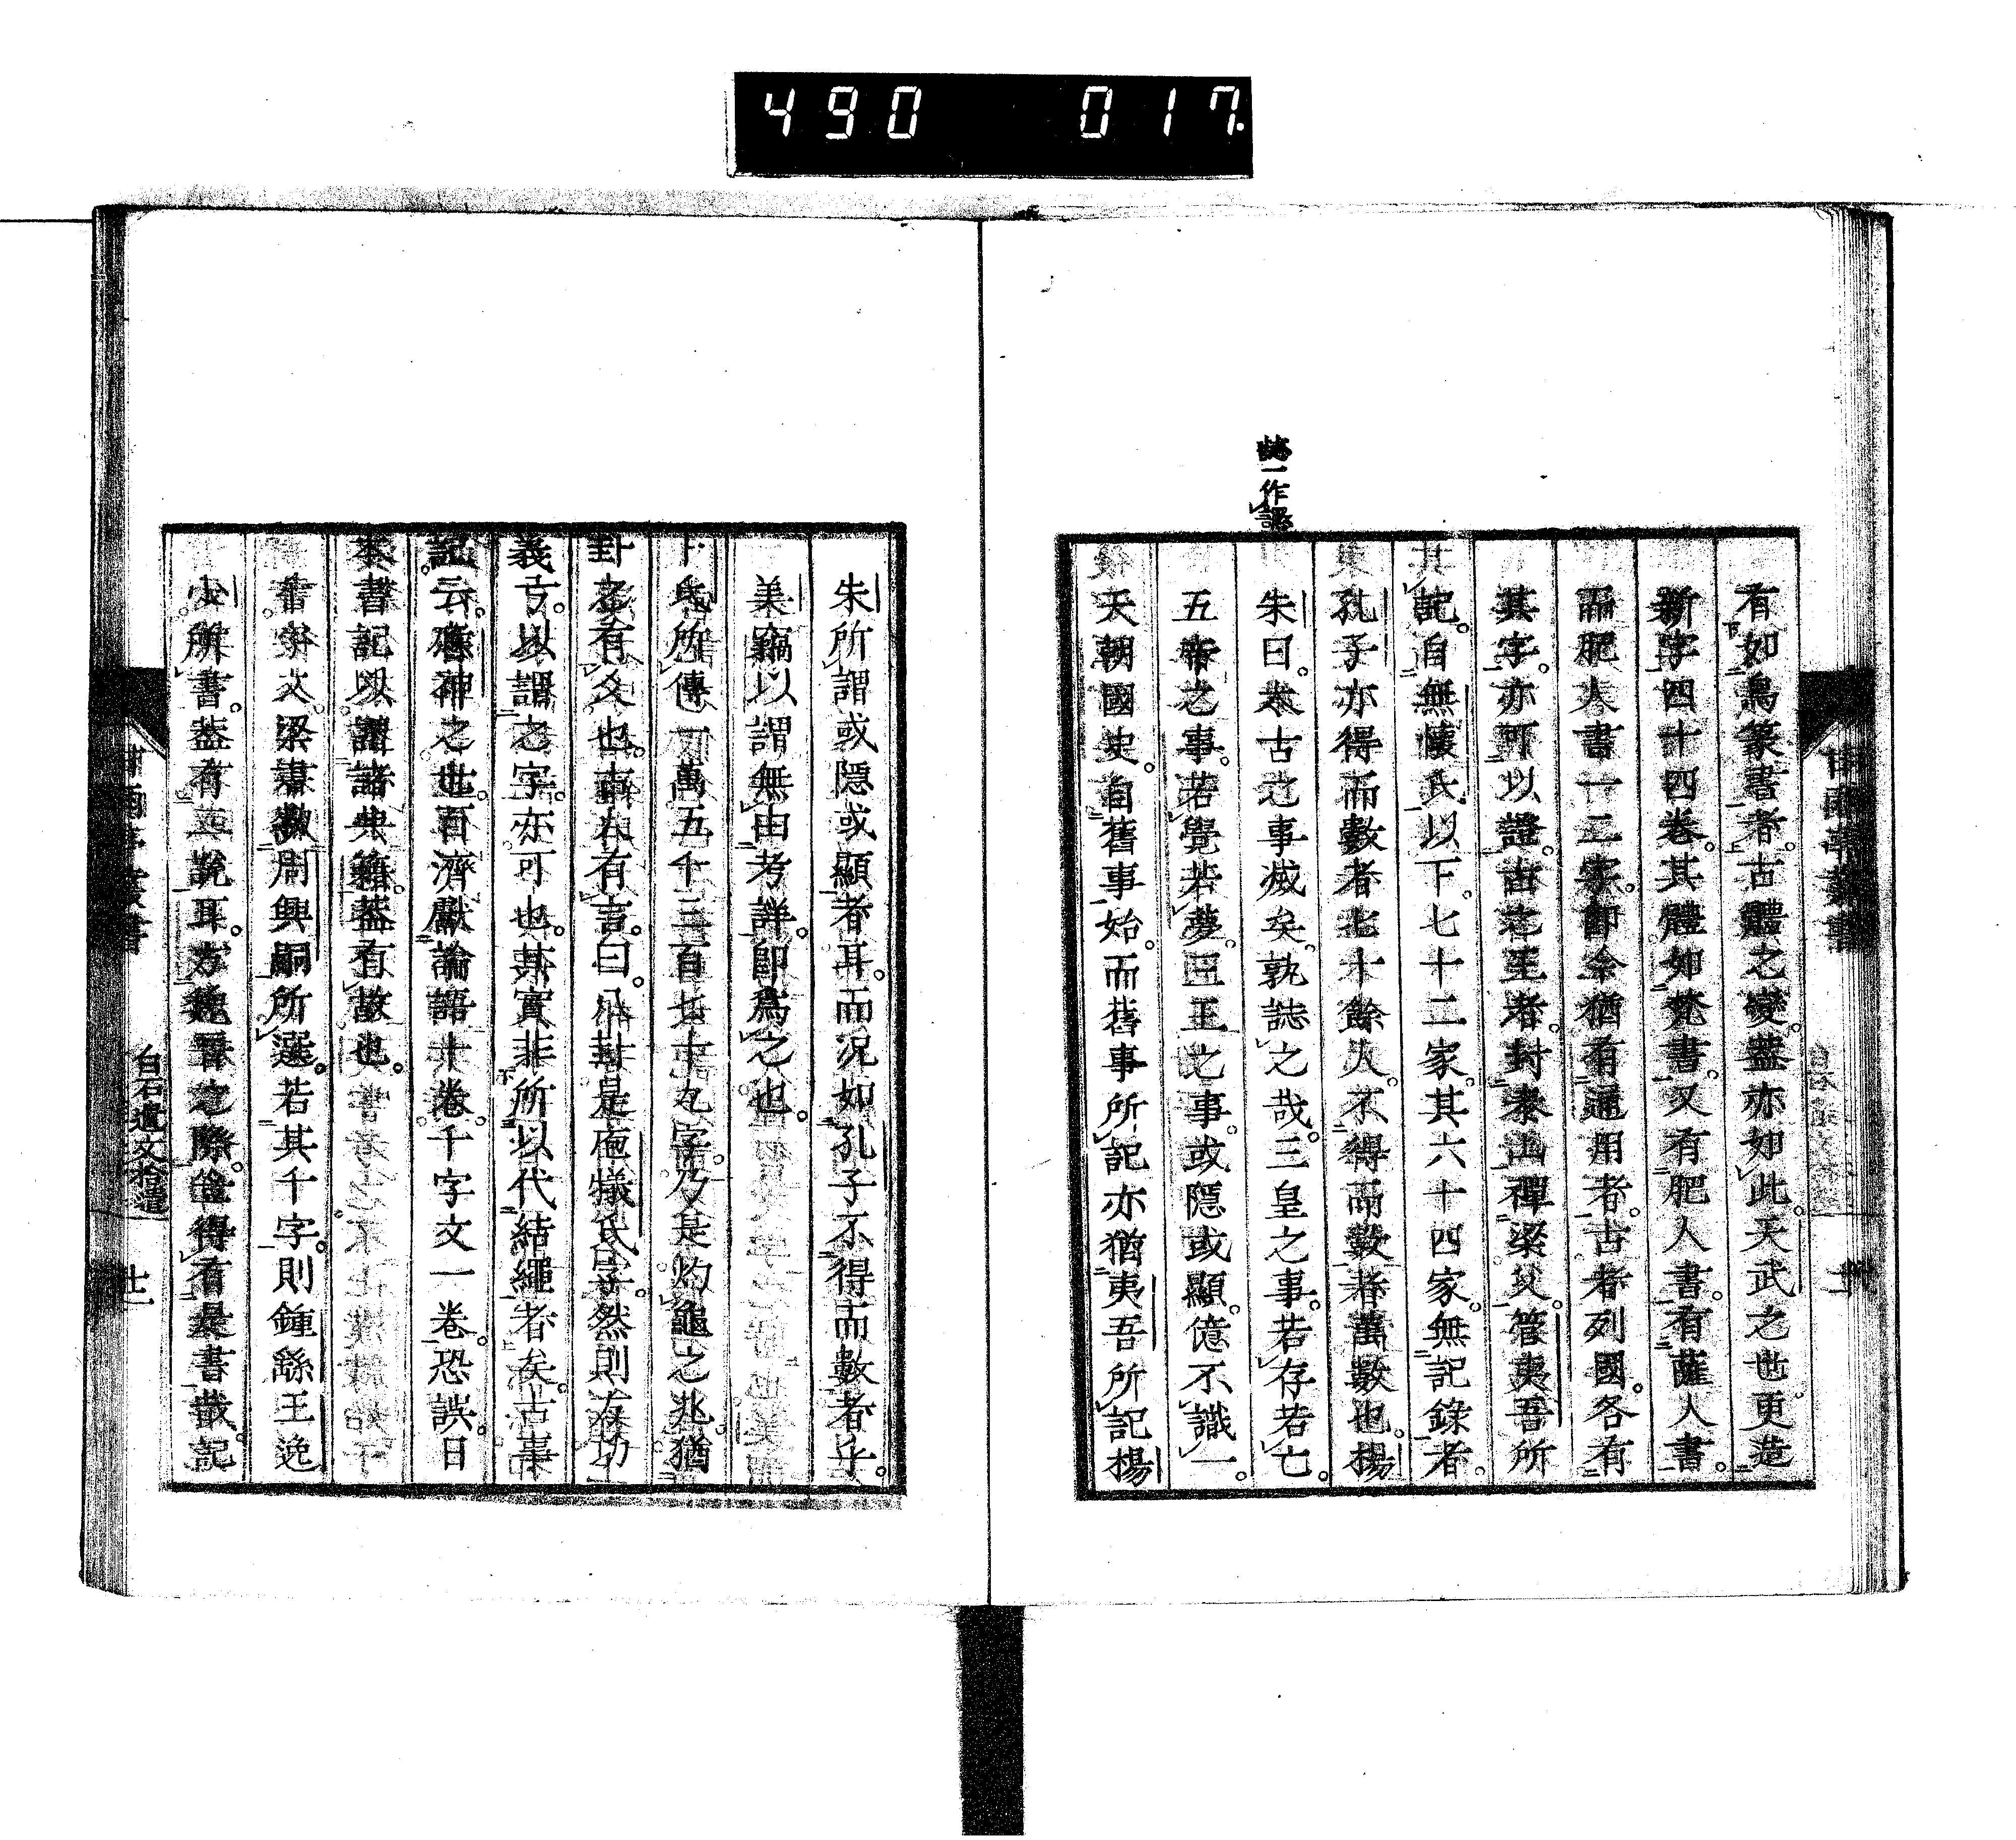 490 017
有如鳥篆書者。古體之變。蓋亦如此。天武之世。更造
新字四十四卷。其體如梵書。又有肥人書。有薩人書。
而肥人書一二字。即今猶有通用者。古者列國。各有
其字。亦可以證。古之王者。封泰山禪梁父。管夷吾所
記。自無懷氏以下。七十二家。其六十四家。無記錄者。
孔子亦得而數者七十餘人。不得而數者萬數也。楊
誌一作識
朱曰。太古之事滅矣。孰誌之哉。三皇之事。若存若亡。
五帝之事。若覺若夢。三王之事。或隱或顯。億不識一。
天朝國史。自舊事始。而舊事所記亦猶夷吾所記楊
朱所謂或隱或顯者耳。而況如孔子不得而數者乎。
美竊以謂無由考詳。即爲之也。
卜氏所傳一萬五千三百七十九字。乃是灼龜之兆。猶
卦之有爻也。古有言。曰。八卦是庖犧氏字。然則
義亏。以謂之字。亦可也。其實非所以代結繩者矣。古事
記云。應神之世。百濟獻論語十卷。千字文一卷。恐誤。日
本書記以謂諸典籍。蓋有故也。
書字文梁肅嗣周興嗣所選。若其千字。則鍾繇王逸
少所書。蓋有二說耳。方魏晉之際。豈得有是書哉。記
白石遺文拾遺
十一